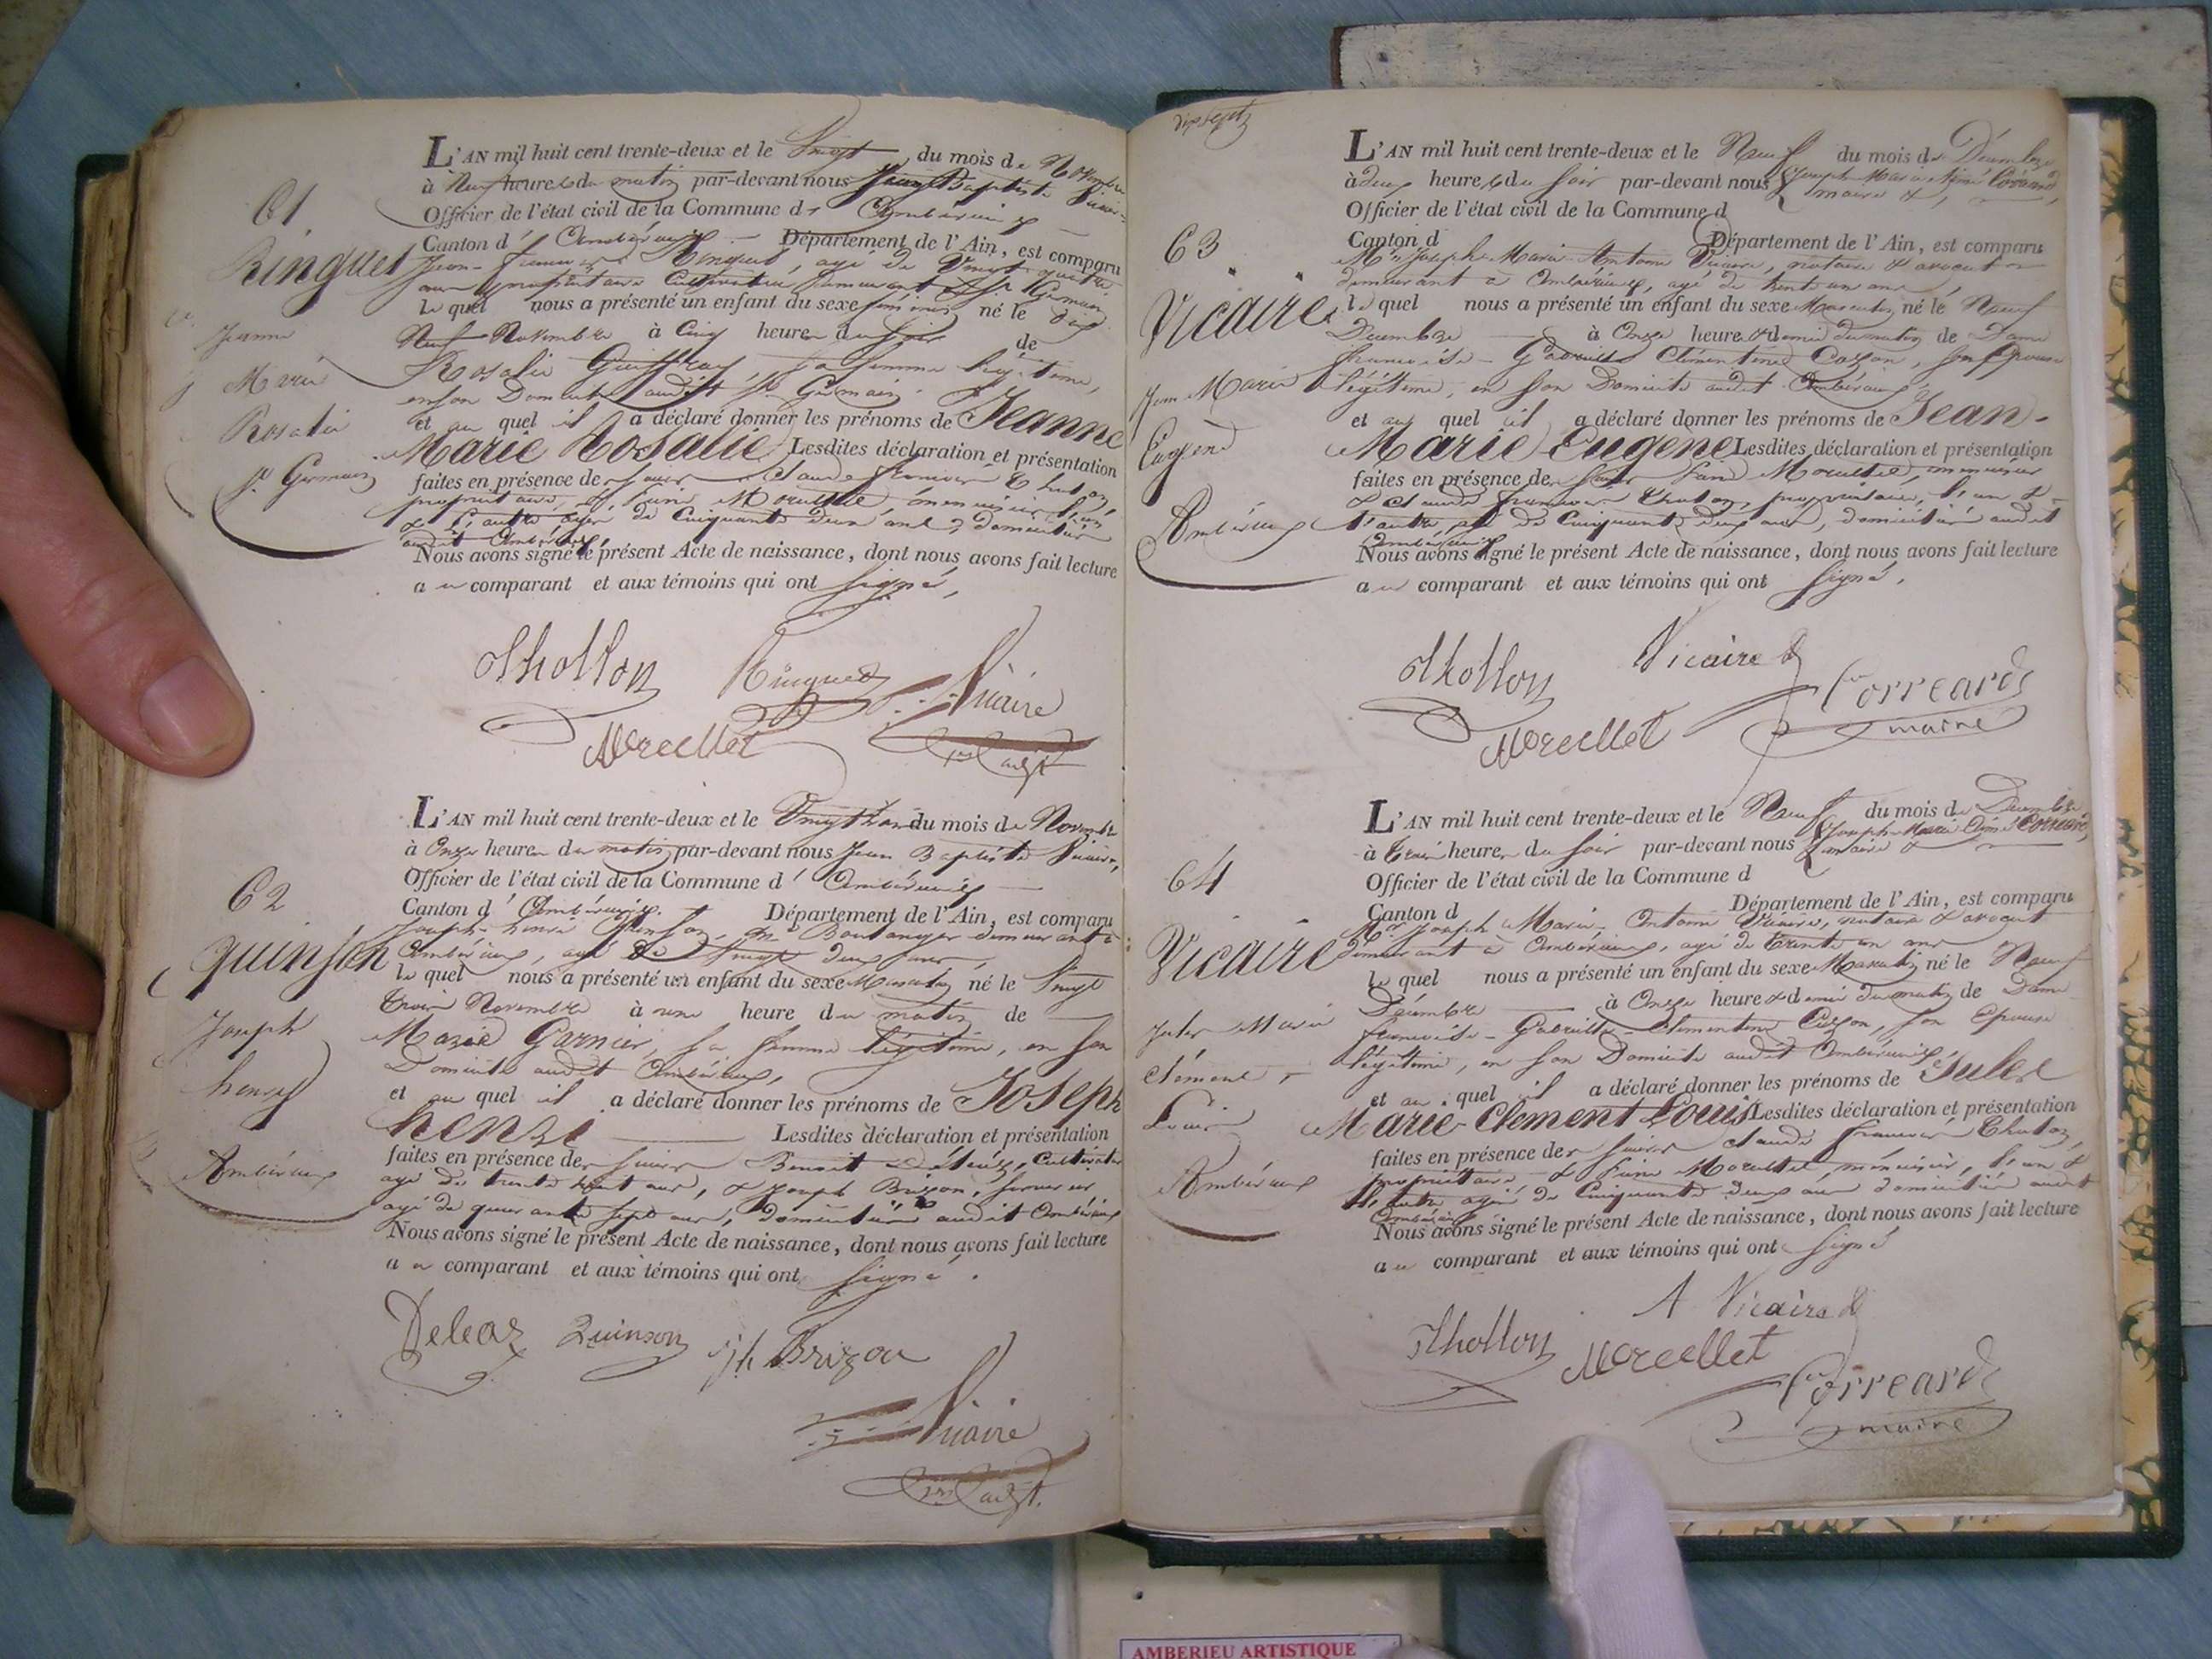 61
Ringuet
Jeanne
Marie
Rosalie
St Germain
L'AN mil huit cent trente-deux et le Vingt du mois de Novembre
à Neuf heures du matin par-devant nous Jean Baptiste Vicaire
Officier de l'état civil de la Commune d' Ambérieux
Canton d' Ambérieux Département de l'Ain, est comparu
Jean-françois Ringuet, agé de Vingt quatre
ans propriétaire Cultivateur demeurant à St Germain
le quel nous a présenté un enfant du sexe féminin né le dix
Neuf Novembre à Cinq heures du soir de
Rosalie sa femme légitime,
en son Domicile audit St Germain
et au quel il a déclaré donner les prénoms de Jeanne
Marie Rosalie Lesdites déclaration et présentation
faites en présence de Claude françois
propriétaire, & menuisier l'un
& l'autre agés de Cinquante deux ans, domiciliés
audit Ambérieux
Nous avons signé le présent Acte de naissance, dont nous avons fait lecture
au comparant et aux témoins qui ont signé,
Thollon Ringuet Vicaire
Morellet
62
quinson
Joseph
henry
Ambérieux
L'AN mil huit cent trente-deux et le Vingt trois du mois de Novembre
à Onze heures du matin par-devant nous Jean Baptiste Vicaire,
Officier de l'état civil de la Commune d' Ambérieux
Canton d' Ambérieux. Département de l'Ain, est comparu
Joseph henri Quinson, Boulanger demeurant à
Ambérieux, agé de Vingt deux ans,
le quel nous a présenté un enfant du sexe Masculin né le Vingt
trois Novembre à une heure du matin de
Marie Garnier, sa femme légitime, en son
Domicile audit Ambérieux,
et au quel il a déclaré donner les prénoms de Joseph
henri Lesdites déclaration et présentation
faites en présence de Benoit Cultivateur
agé de trente huit ans, & Joseph Brizon,
agé de quarante sept ans, domiciliés audit Ambérieux
Nous avons signé le présent Acte de naissance, dont nous avons fait lecture
au comparant et aux témoins qui ont signé.
Quinson Jh Brizon
Vicaire
dix sept
63
Vicaire
Jean Marie
Eugene
Ambérieux
L'AN mil huit cent trente-deux et le Neuf du mois de Décembre
à deux heures du soir par-devant nous Joseph Marie Aimé Corréard
maire &
Officier de l'état civil de la Commune d
Canton d Département de l'Ain, est comparu
Mr Joseph-Marie-Antoine Vicaire, notaire & avocat
demeurant à Ambérieux, agé de trente un ans
le quel nous a présenté un enfant du sexe Masculin né le Neuf
Décembre à Onze heures & demie du matin de Dame
francoise-Gabrielle Clémentine Cozon, son Epouse
légitime, en son Domicile audit Ambérieux
et au quel il a déclaré donner les prénoms de Jean-
Marie Eugene Lesdites déclaration et présentation
faites en présence de menuisier
& Claude françois propriétaire, l'un &
l'autre agé de Cinquante deux ans, domiciliés audit
Ambérieux
Nous avons signé le présent Acte de naissance, dont nous avons fait lecture
au comparant et aux témoins qui ont signé.
Thollon Vicaire Corréard
Morellet maire
64
Vicaire
Jules Marie
Clément
Louis
Ambérieux
L'AN mil huit cent trente-deux et le Neuf du mois de Décembre
à trois heures du soir par-devant nous Joseph-Marie Aimé Corréard,
maire &
Officier de l'état civil de la Commune d
Canton d Département de l'Ain, est comparu
Mr Joseph Marie-Antoine Vicaire, notaire & avocat
demeurant à Ambérieux, agé de trente un ans
le quel nous a présenté un enfant du sexe Masculin né le Neuf
Décembre à Onze heures & demie du matin de Dame
francoise-Gabrielle-Clémentine Cozon, son Epouse
légitime, en son Domicile audit Ambérieux,
et au quel il a déclaré donner les prénoms de Jules
Marie-Clement Louis Lesdites déclaration et présentation
faites en présence de Claude françois
propriétaire & menuisier, l'un &
l'autre agé de Cinquante deux ans domiciliés audit
Ambérieux
Nous avons signé le présent Acte de naissance, dont nous avons fait lecture
au comparant et aux témoins qui ont signé
Thollon A Vicaire
Morellet Corréard
maire
AMBERIEU ARTISTIQUE